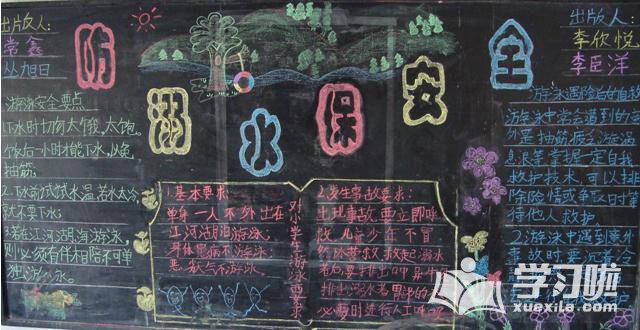 出版人:
常鑫
丛旭日
防溺水保安全
出版人:
李欣悦
李臣洋
游泳安全要点
1.下水时切勿太饿、太饱。
饭后一小时才能下水,以免
抽筋。
2.下水前试试水温,若水太冷,
就不要下水;
3.若在江河湖海游泳,
则必须有伴相陪不可单
独游泳。
1.基本要求:
单身一人不外出在
江河湖泊游泳;
身体患病不游泳;
恶劣天气不游泳。
对小学生游泳要求
2.发生事故要求:
出现事故要立即呼
救,儿童少年不冒
救起溺水
者后要排出口鼻
排出溺水者胃部的
必要时进行人工呼吸
游泳遇险后的自救
游泳中常会遇到的
外是抽筋疲乏游漩涡
急浪等掌握一定自我
救护技术可以排
除险情或争取时
待他人救护
2.游泳中遇到意外
事故时要沉着
学习啦
xuexila.com